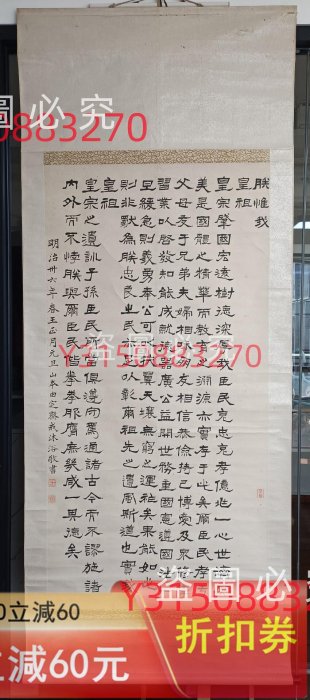 圖 必 究
0883270
朕惟我
皇祖
皇宗肇國宏遠樹德深厚我臣民克忠克孝億兆一心世濟
美是國體之精華而教育之淵源亦實存于此矣爾臣民孝
父母友于兄弟夫婦相和朋友相信恭儉持己博愛及衆修
習業以啓發知能成就德器廣公益開世務重國憲遵國法
旦緩急則義勇奉公可以扶翼天壤無窮之運祉矣果能如
則非獨為朕忠良之民足以彰爾祖先之遺風斯道也實
皇祖
皇宗之遺訓子孫臣民所當俱遵向焉通諸古今而不謬施諸
內外而不悖朕與爾臣民皆拳拳服膺庶幾咸一其德矣
明治卅六年春王正月元旦山本由定沐浴敬書
盜 圖
Y3150883270
盜 圖 必
Y3150883270
0立減60
立減60元
折扣券